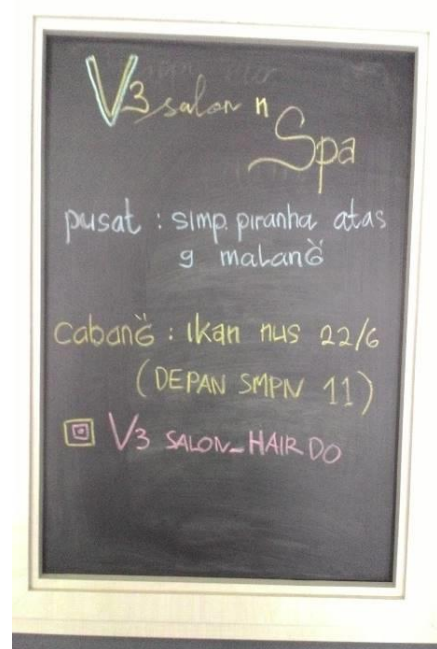 V3 salon n
Spa
pusat : simp. piranha atas
g malang
cabang : Ikan nus 22/6
(DEPAN SMPN 11)
V3 SALON_HAIRDO